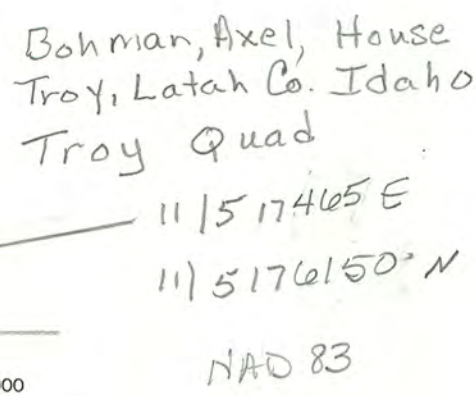 Bohman, Axel, House
Troy, Latah Co. Idaho
Troy Quad
11/517465 E
11/5176150 N
NAD 83
00